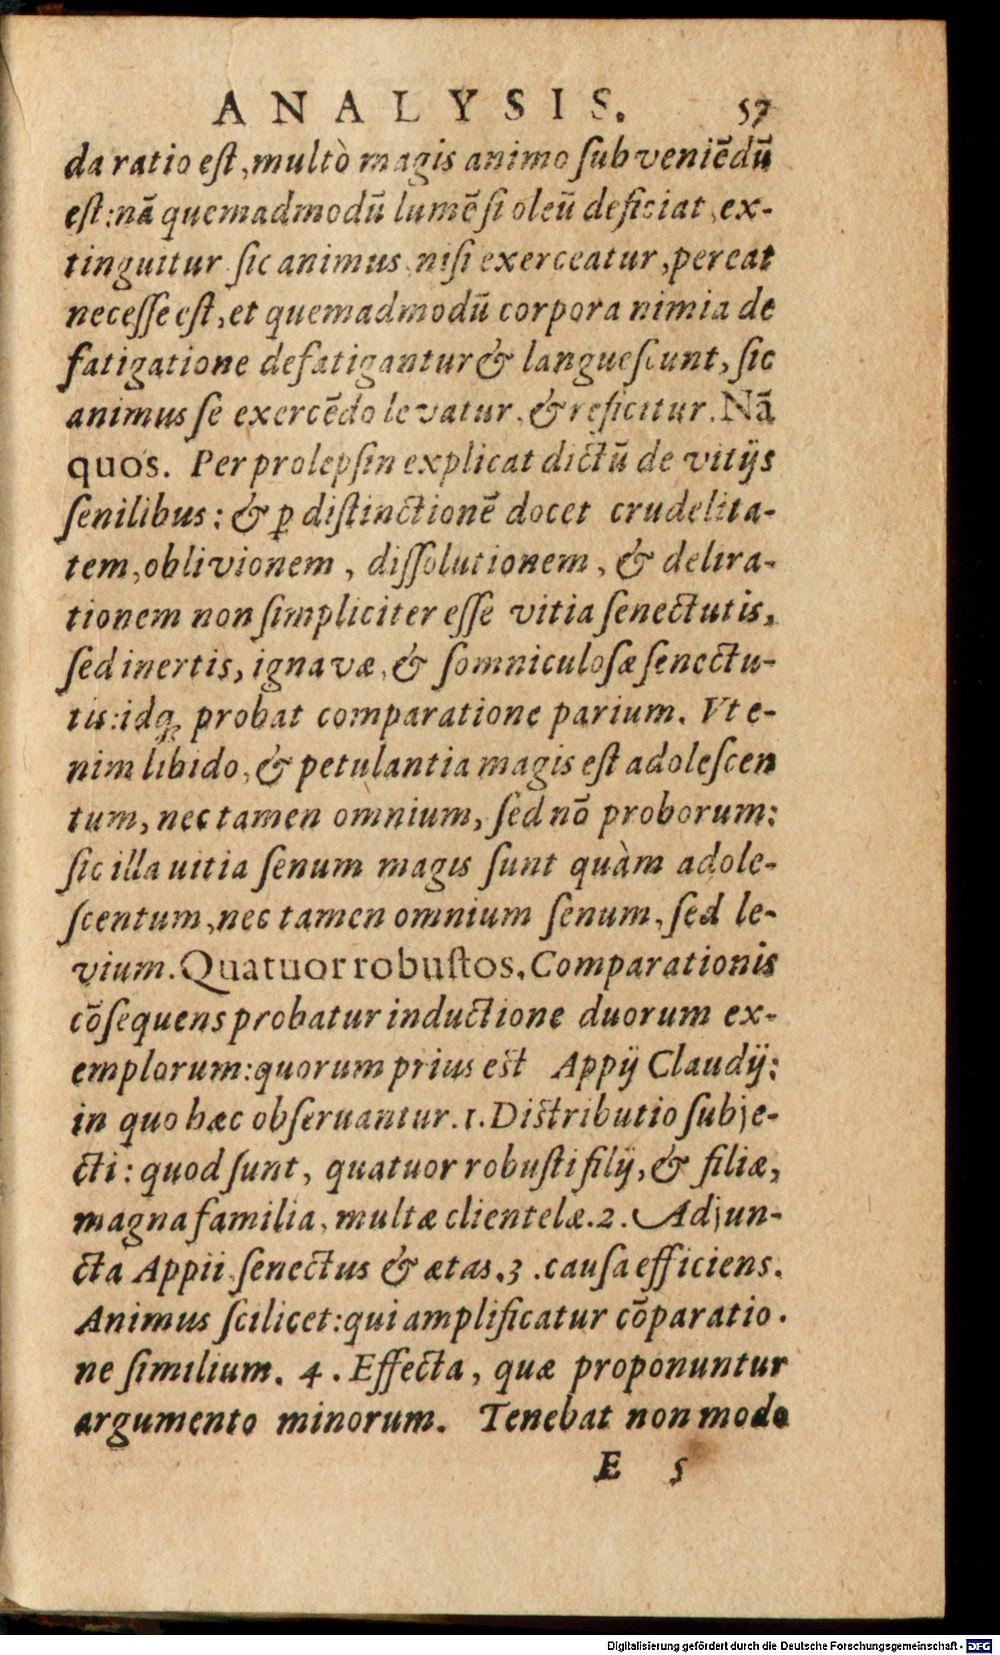 ANALYSIS. 57
da ratio est, multò magis animo subveniēdū
est: nā quemadmodū lumē si oleū deficiat, ex-
tinguitur sic animus, nisi exerceatur, pereat
necesse est, et quemadmodū corpora nimia de
fatigatione defatigantur & languescunt, sic
animus se exercēdo levatur, & reficitur. Nā
quos. Per prolepsin explicat dictū de vitijs
senilibus: & ꝑ distinctionē docet crudelita-
tem, oblivionem, dissolutionem, & delira-
tionem non simpliciter esse vitia senectutis,
sed inertis, ignavæ, & somniculosæ senectu-
tis: idq; probat comparatione parium. Vt e-
nim libido, & petulantia magis est adolescen
tum, nec tamen omnium, sed nō proborum:
sic illa uitia senum magis sunt quàm adole-
scentum, nec tamen omnium senum, sed le-
vium. Quatuor robustos. Comparationis
cōsequens probatur inductione duorum ex-
emplorum: quorum prius est Appij Claudij:
in quo hæc obseruantur. 1. Distributio subje-
cti: quod sunt, quatuor robusti filij, & filiæ,
magna familia, multæ clientelæ. 2. Adjun-
cta Appii senectus & ætas. 3. causa efficiens.
Animus scilicet: qui amplificatur cōparatio.
ne similium. 4. Effecta, quæ proponuntur
argumento minorum. Tenebat non modo
E 5
Digitalisierung gefördert durch die Deutsche Forschungsgemeinschaft - DFG